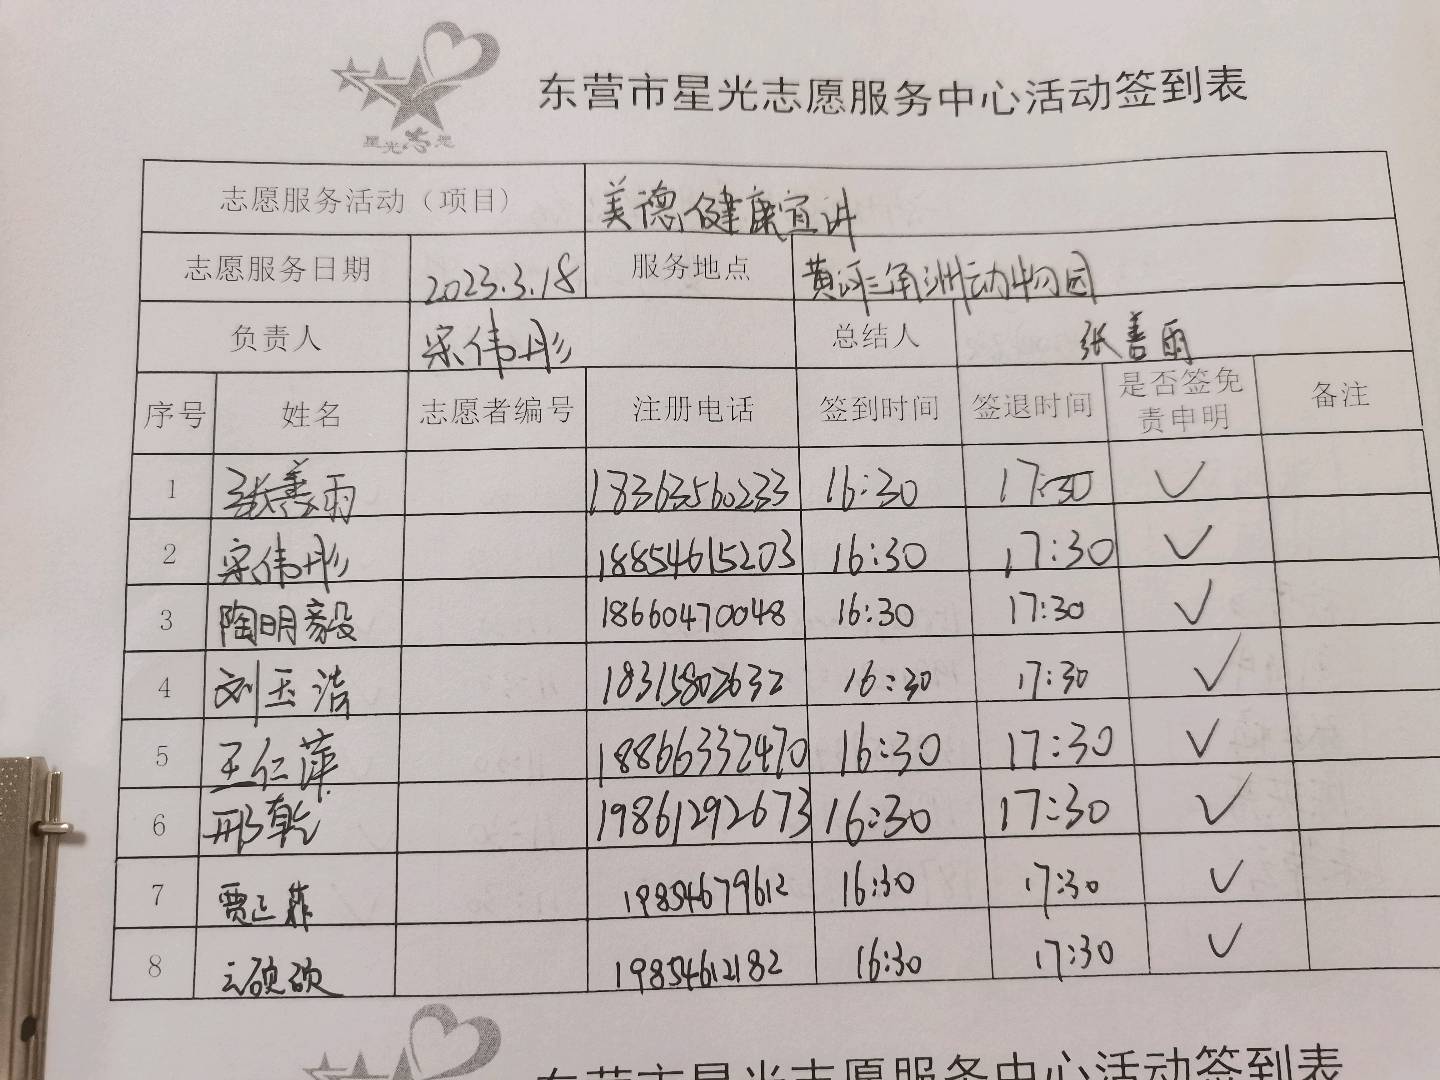 星光志愿
东营市星光志愿服务中心活动签到表
志愿服务活动（项目） 美德健康宣讲
志愿服务日期 2023.3.18 服务地点 黄河三角洲动物园
负责人 宋伟彤 总结人 张善雨
序号 姓名 志愿者编号 注册电话 签到时间 签退时间 是否签免责申明 备注
1 张善雨 18363560233 16:30 17:30 ✓
2 宋伟彤 18854615203 16:30 17:30 ✓
3 陶明毅 18660470048 16:30 17:30 ✓
4 刘玉洁 18315802632 16:30 17:30 ✓
5 王仁萍 18866332470 16:30 17:30 ✓
6 邢乾 19861292673 16:30 17:30 ✓
7 贾正菲 19854679612 16:30 17:30 ✓
8 云硕硕 19854612182 16:30 17:30 ✓
东营市星光志愿服务中心活动签到表